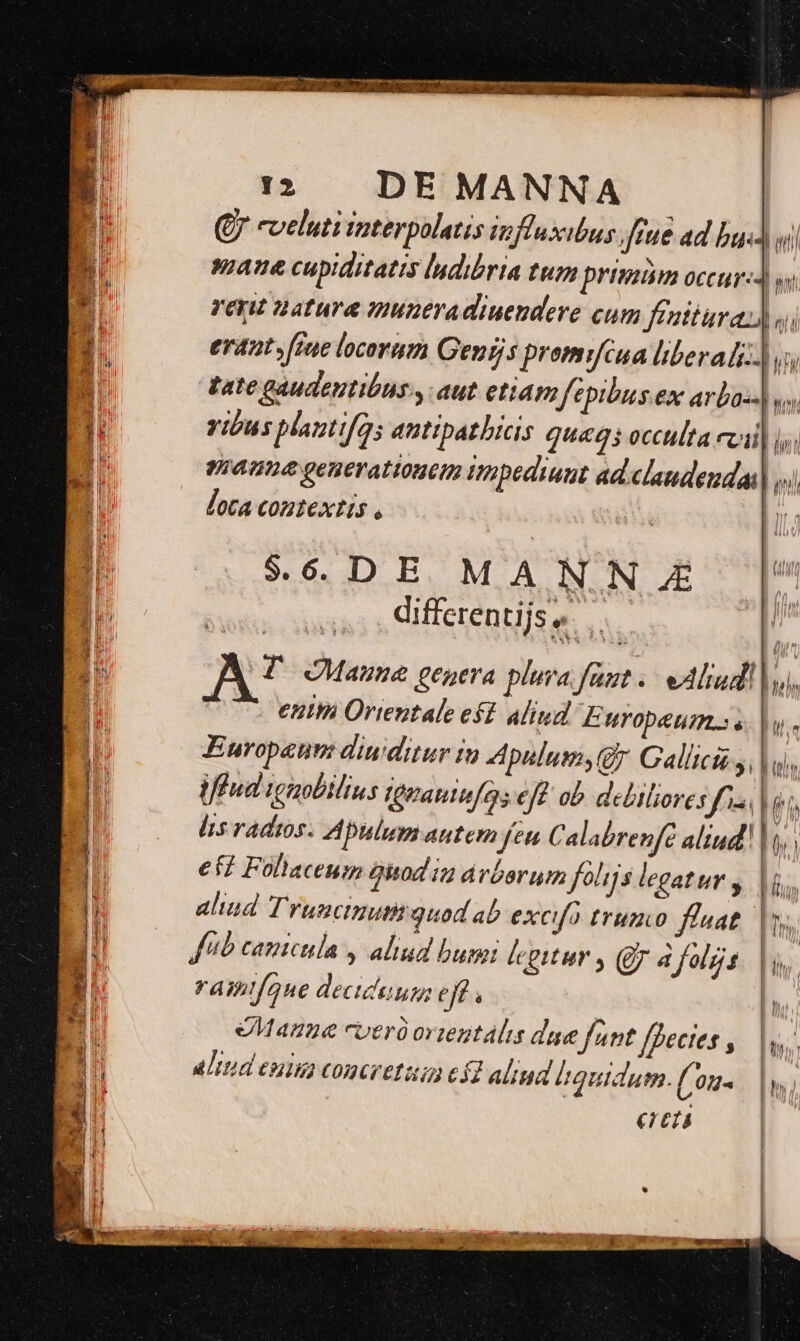 12 DE MANNA
& veluti interpolatis influxibus, siue ad hu-
manæ cupiditatis ludibria tum primùm occur-
rerit naturæ munera diuendere cum finitura
erant, siue locorum Genijs promiscua liberali-
tate gaudentibus, aut etiam sepibus ex arbo-
ribus plantisq; antipathicis quæq; occulta vi
mannæ generationem impediunt ad claudenda
loca contextis,
§. 6. DE MANNÆ
differentijs.
AT Mannæ genera plura sunt. Aliud
enim Orientale est aliud Europæum.
Europæum diuiditur in Apulum, & Gallicū,
istud ignobilius ignauiusq; est ob debiliores so-
lis radios. Apulum autem seu Calabrense aliud
est Foliaceum quod in arborum folijs legatur,
aliud Truncinum quod ab exciso trunco fluat
sub canicula, aliud humi legitur, & à folijs
ramisque deciduum est,
Mannæ verò orientalis duæ sunt species,
aliud enim concretum est aliud liquidum. Con-
creta